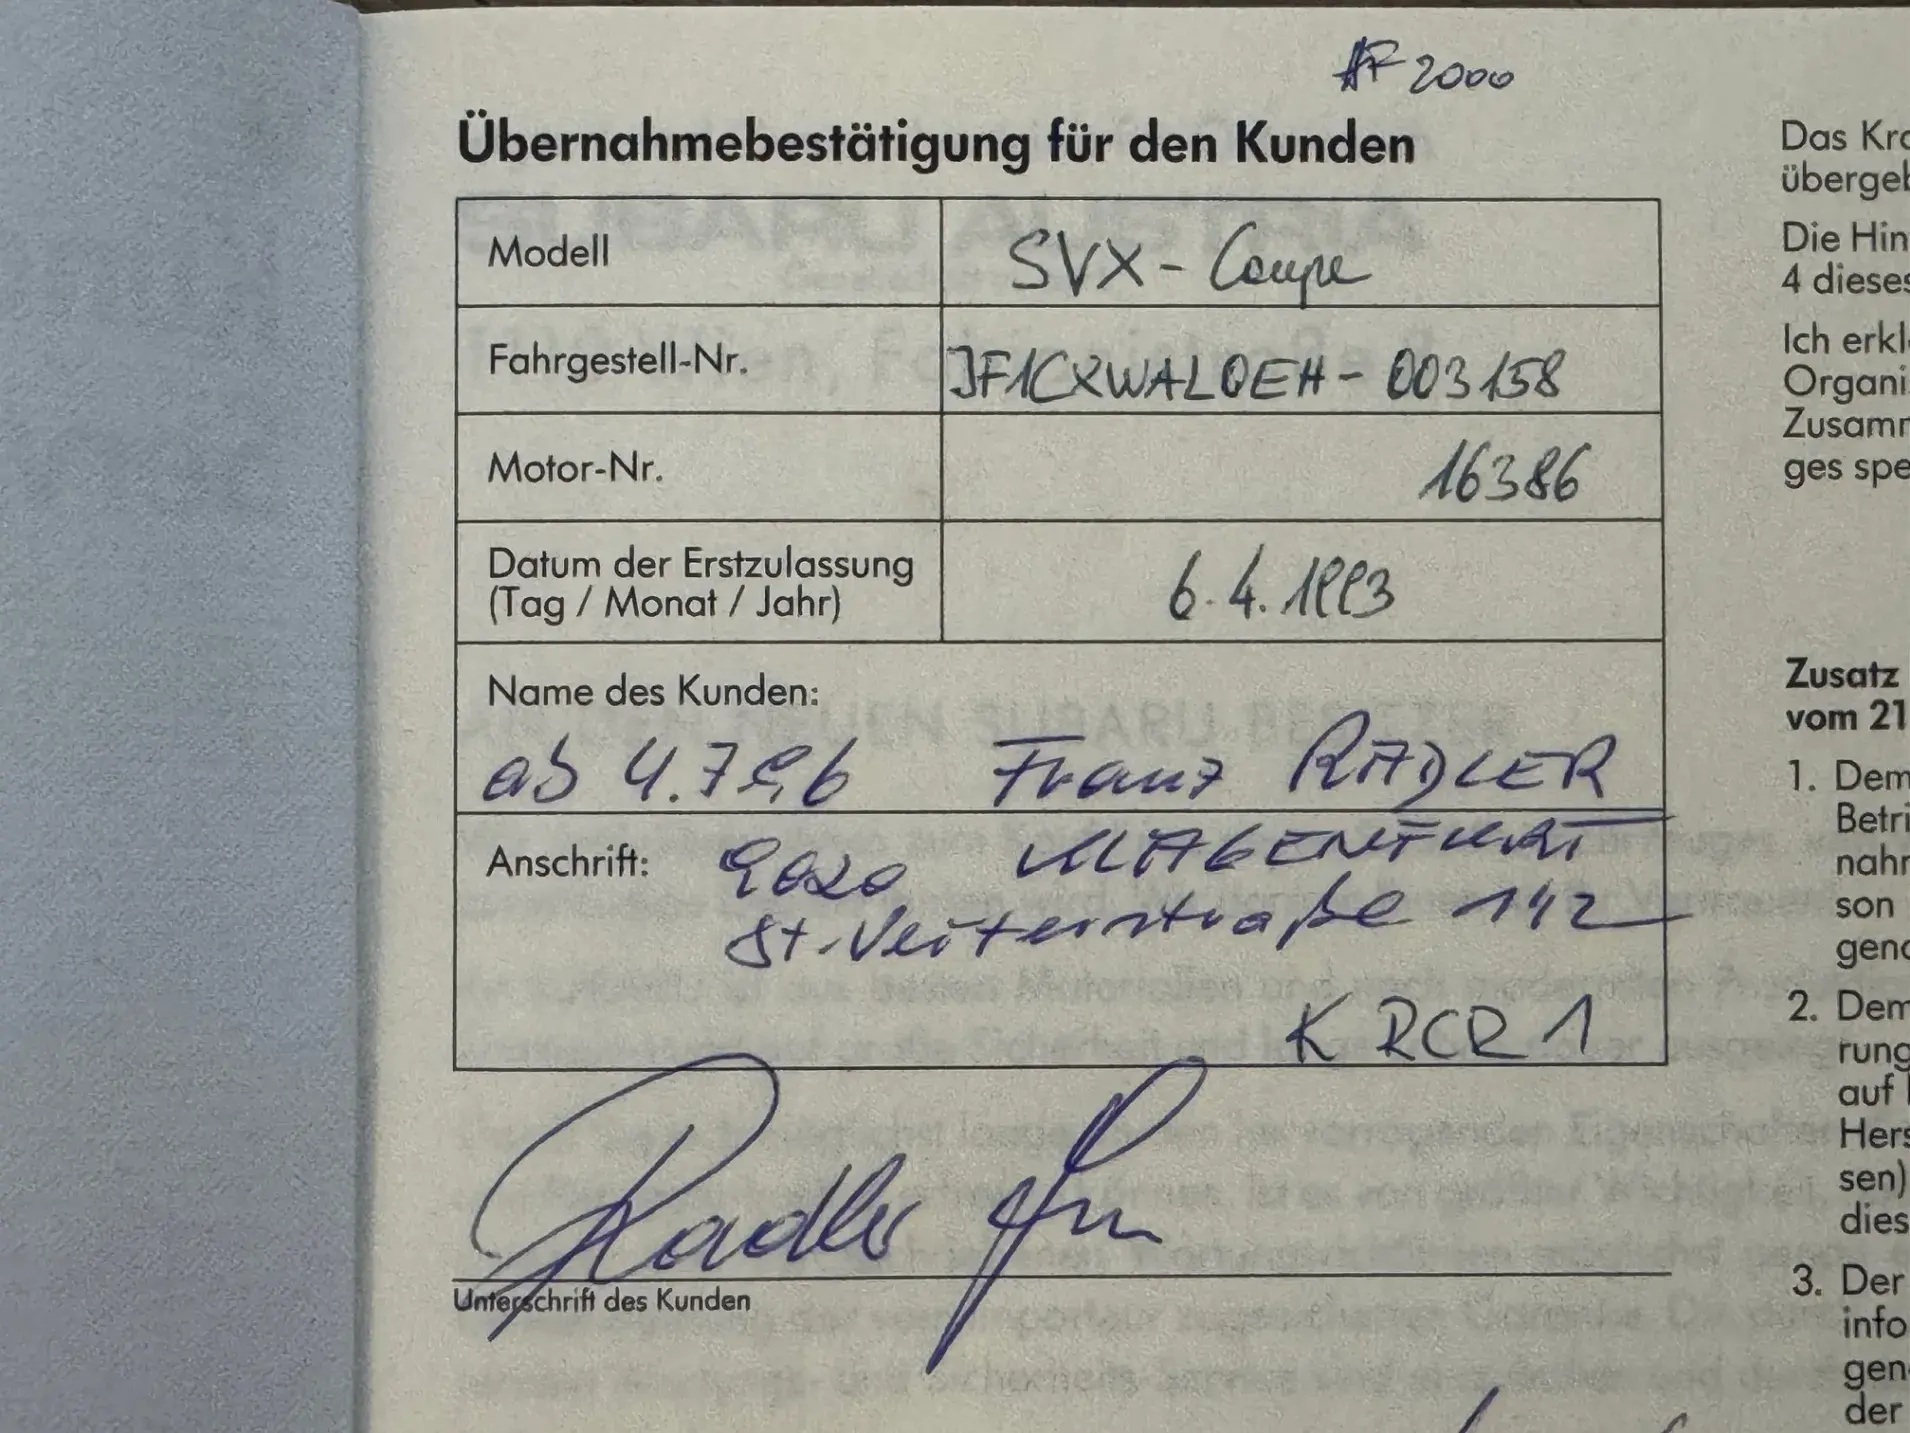 2000
Übernahmebestätigung für den Kunden
Modell SVX - Coupe
Fahrgestell-Nr. JF1CXWAL0EH - 003158
Motor-Nr. 16386
Datum der Erstzulassung
(Tag / Monat / Jahr) 6.4.1993
Name des Kunden:
ab 4.7.96 Franz RADLER
Anschrift: 9020 KLAGENFURT
St. Veiterstraße 142
K RCR 1
Radler
Unterschrift des Kunden
Das
überge
Die Hin
4 dieses
Ich erkl
Organi
Zusam
ges spe
Zusatz
vom 21
1. Dem
Betri
nahr
son
geno
2. Dem
rung
auf
Hers
sen)
dies
3. Der
info
gen
der